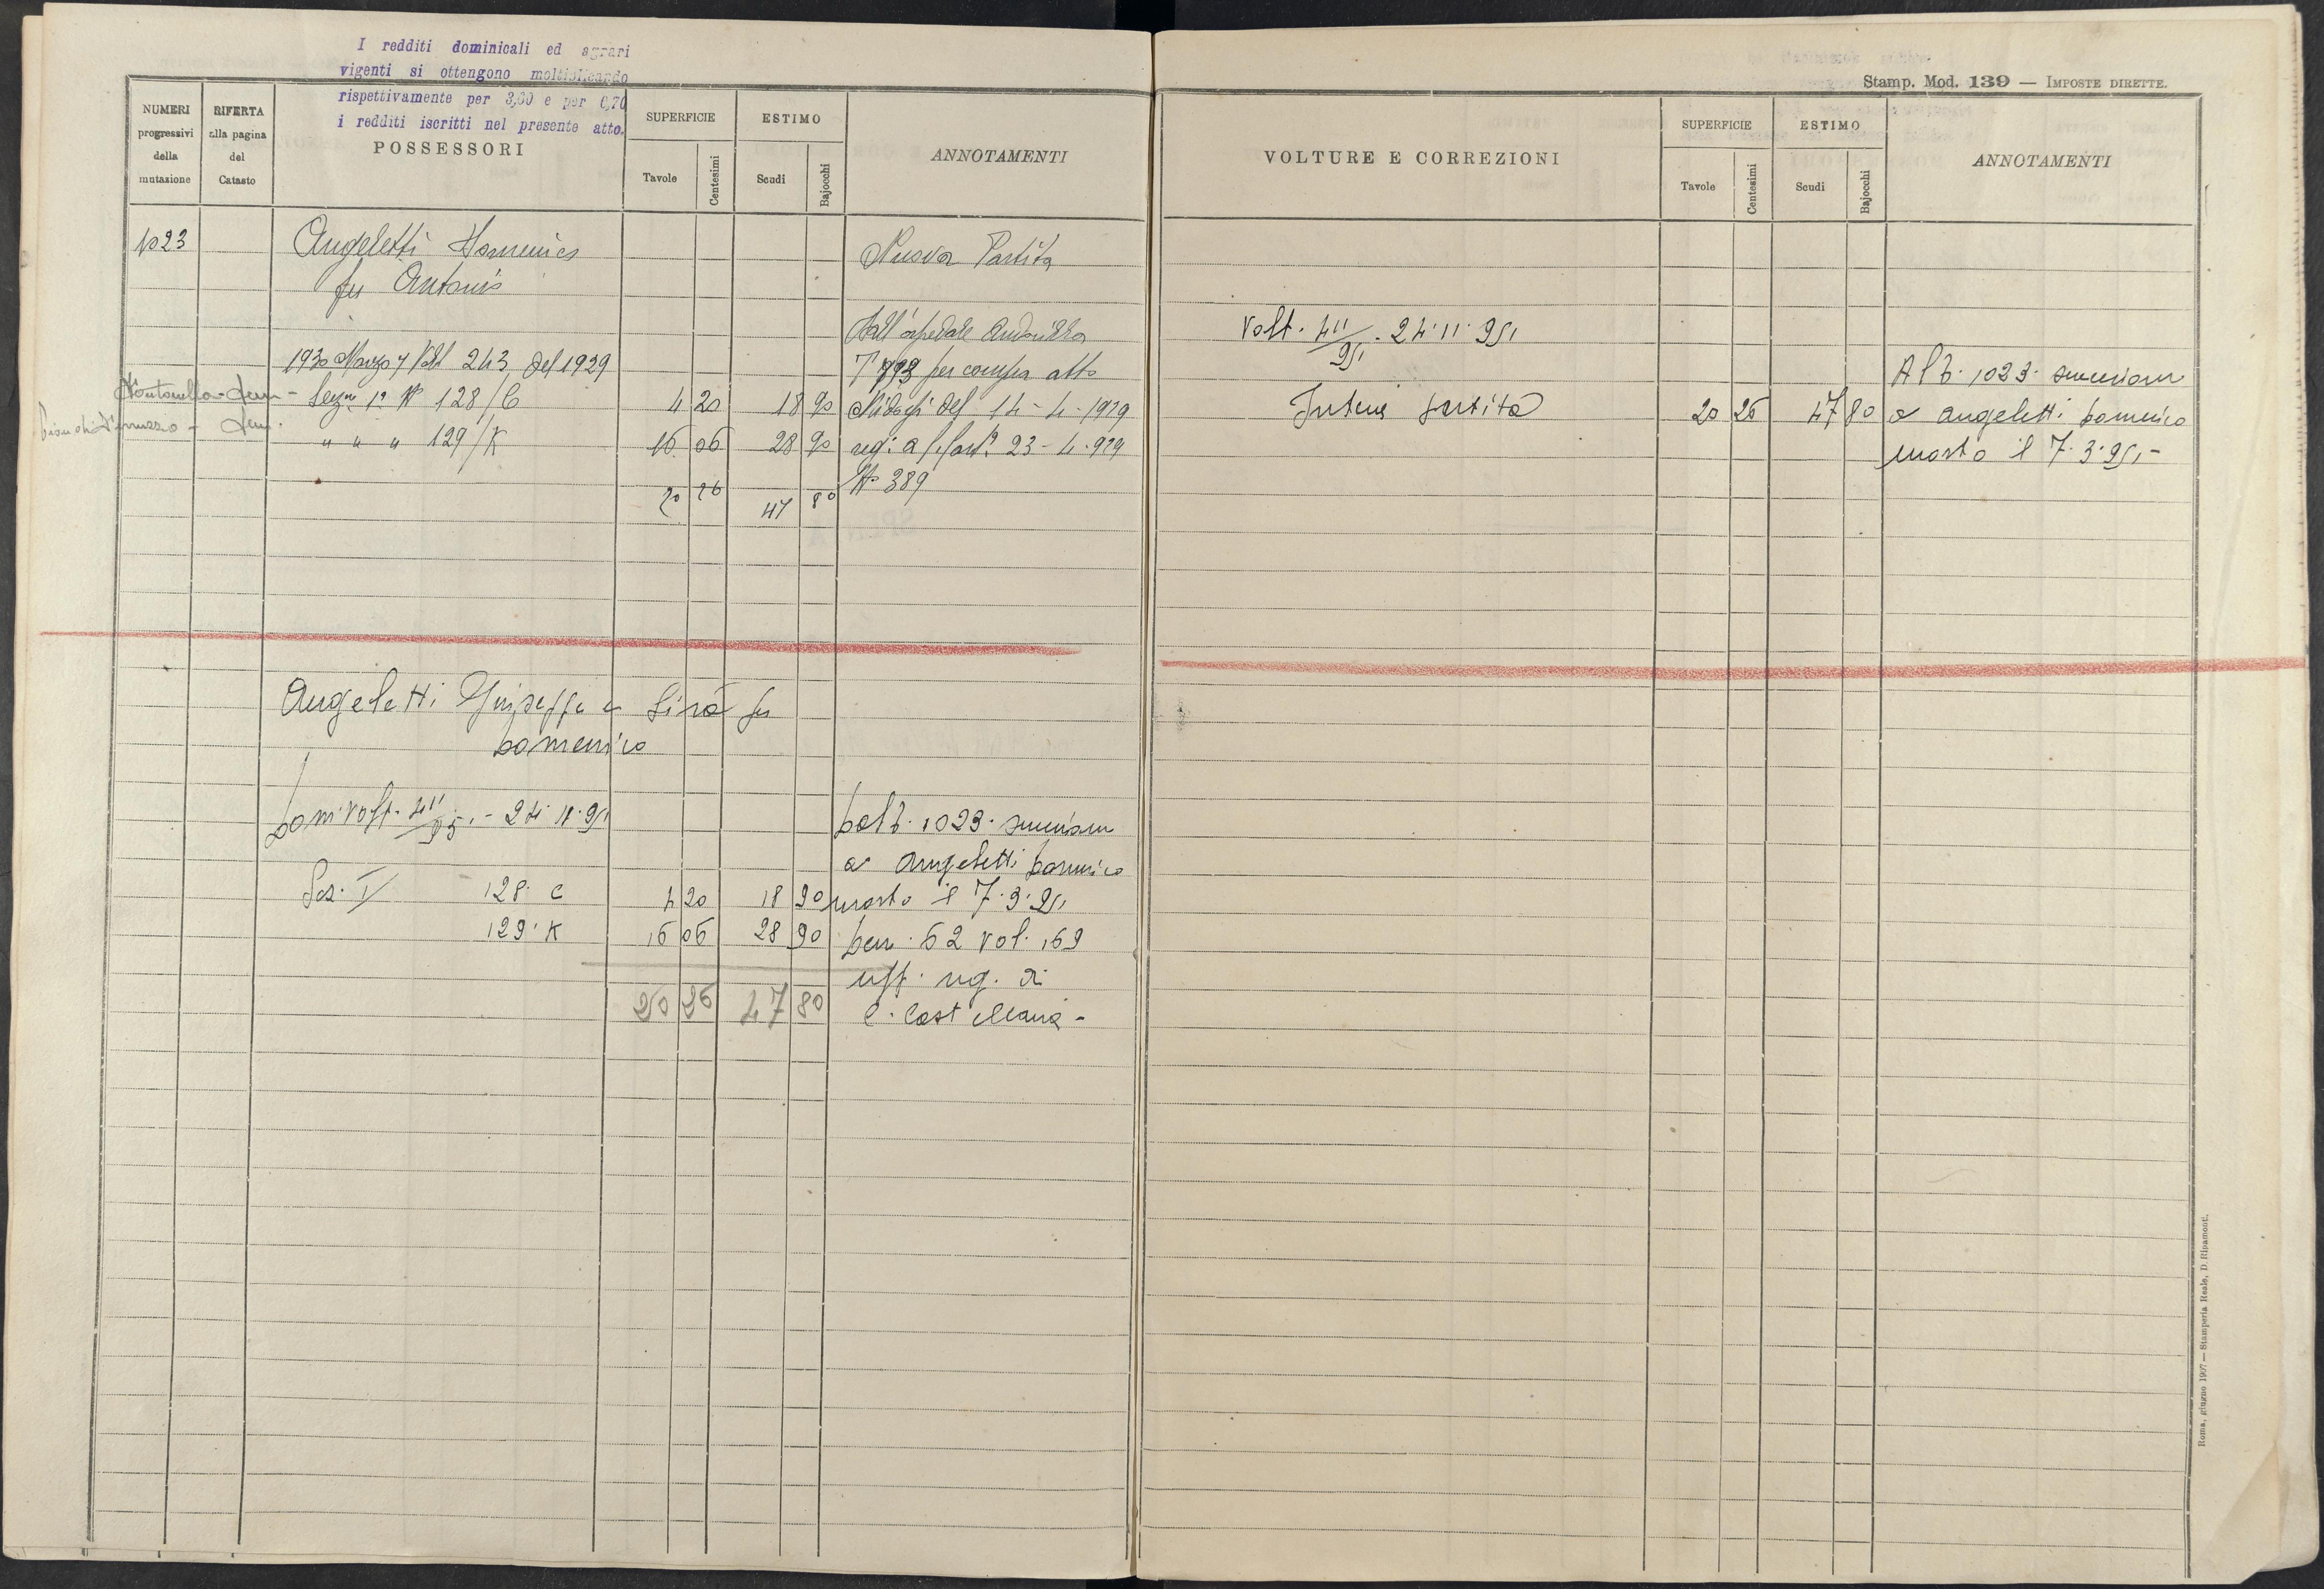 I redditi dominicali ed agrari
vigenti si ottengono moltiplicando
rispettivamente per 3,60 e per 0,70
i redditi iscritti nel presente atto.
NUMERI progressivi della mutazione
RIFERTA alla pagina del Catasto
POSSESSORI
SUPERFICIE
Tavole
Centesimi
ESTIMO
Scudi
Bajocchi
ANNOTAMENTI
1023
Angeletti Domenico
fu Antonio
Nuova Partita
Dall'ospedale
1930 Marzo 7 Volt 243 del 1929
per compra atto
Sezne 1a N 128/C 4 20 18 90
del 14-4-1929
" " " 129/K 16 06 28 90
23-4-929
20 26 47 80
No 389
Angeletti Giuseppe e fu
Domenico
Volt. 411/951 - 24.11.951
Dal b. 1023. successione
a Angeletti Domenico
Sez. I 128. C 4 20 18 90
morto il 7.3.951
129. K 16 06 28 90
den. 62 vol. 169
uff. reg. di
20 26 47 80
C. Castellana -
Stamp. Mod. 139 — IMPOSTE DIRETTE.
VOLTURE E CORREZIONI
SUPERFICIE
Tavole
Centesimi
ESTIMO
Scudi
Bajocchi
ANNOTAMENTI
Volt. 411/951. 24.11.951
Al b. 1023. successione
Intera partita 20 26 47 80
a Angeletti Domenico
morto il 7.3.951 -
Roma, giugno 1907 — Stamperia Reale, D. Ripamonti.